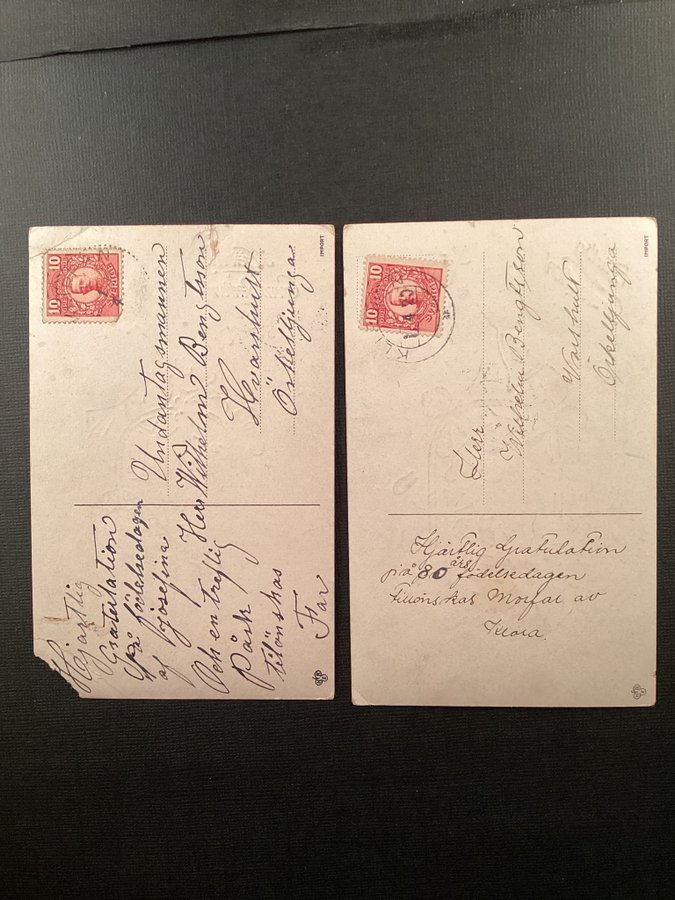 10 10
SVERIGE
IMPORT
Undantagsmannen
Herr Wilhelm Bengtsson
Hvarshult
Örkelljunga
Hjärtlig
Gratulation
På födelsedagen
af Josefina
Och en treflig
Påsk
tilönskas
Far
10 10
IMPORT
Herr
Wilhelm Bengtsson
Varshult
Örkelljunga
Hjärtlig Gratulation
på 80 års födelsedagen
tillönskas Morfar av
Klara